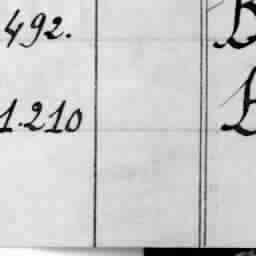 492.
1.210